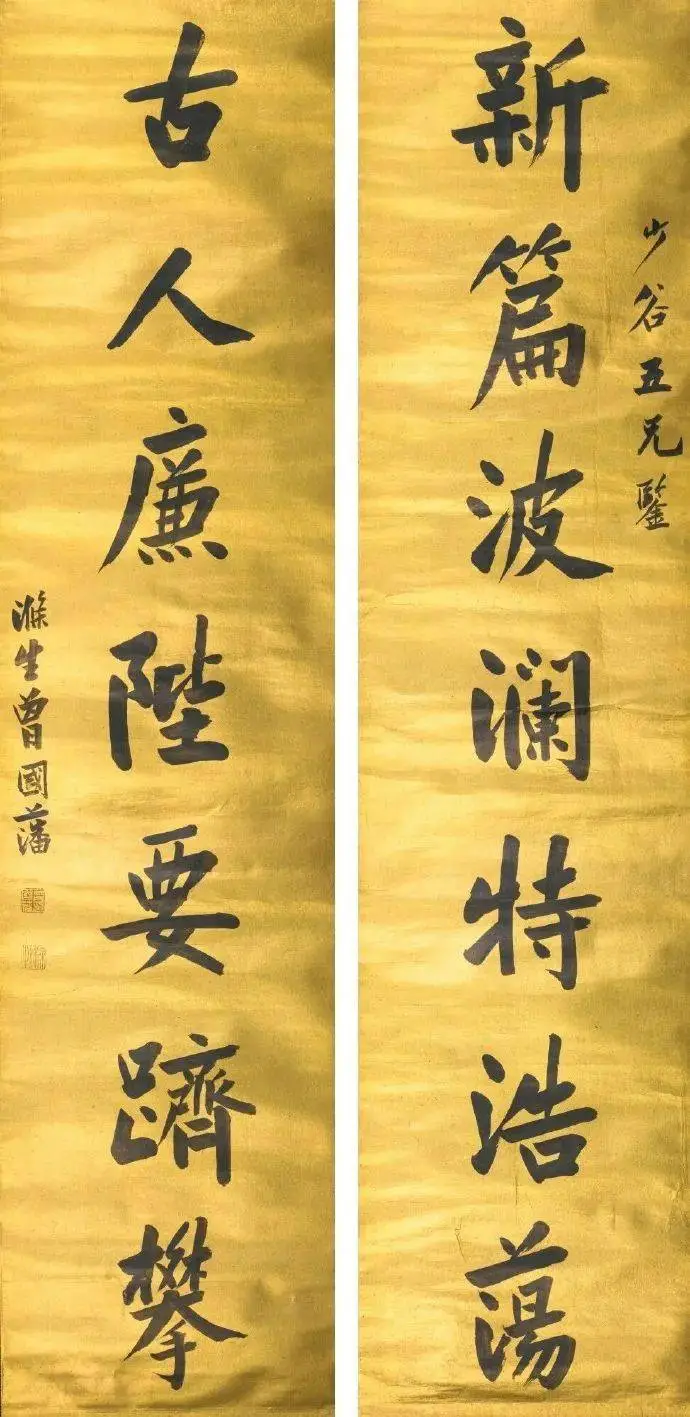 少谷五兄鑒
新篇波瀾特浩蕩
古人廉陛要躋攀
滌生曾國藩